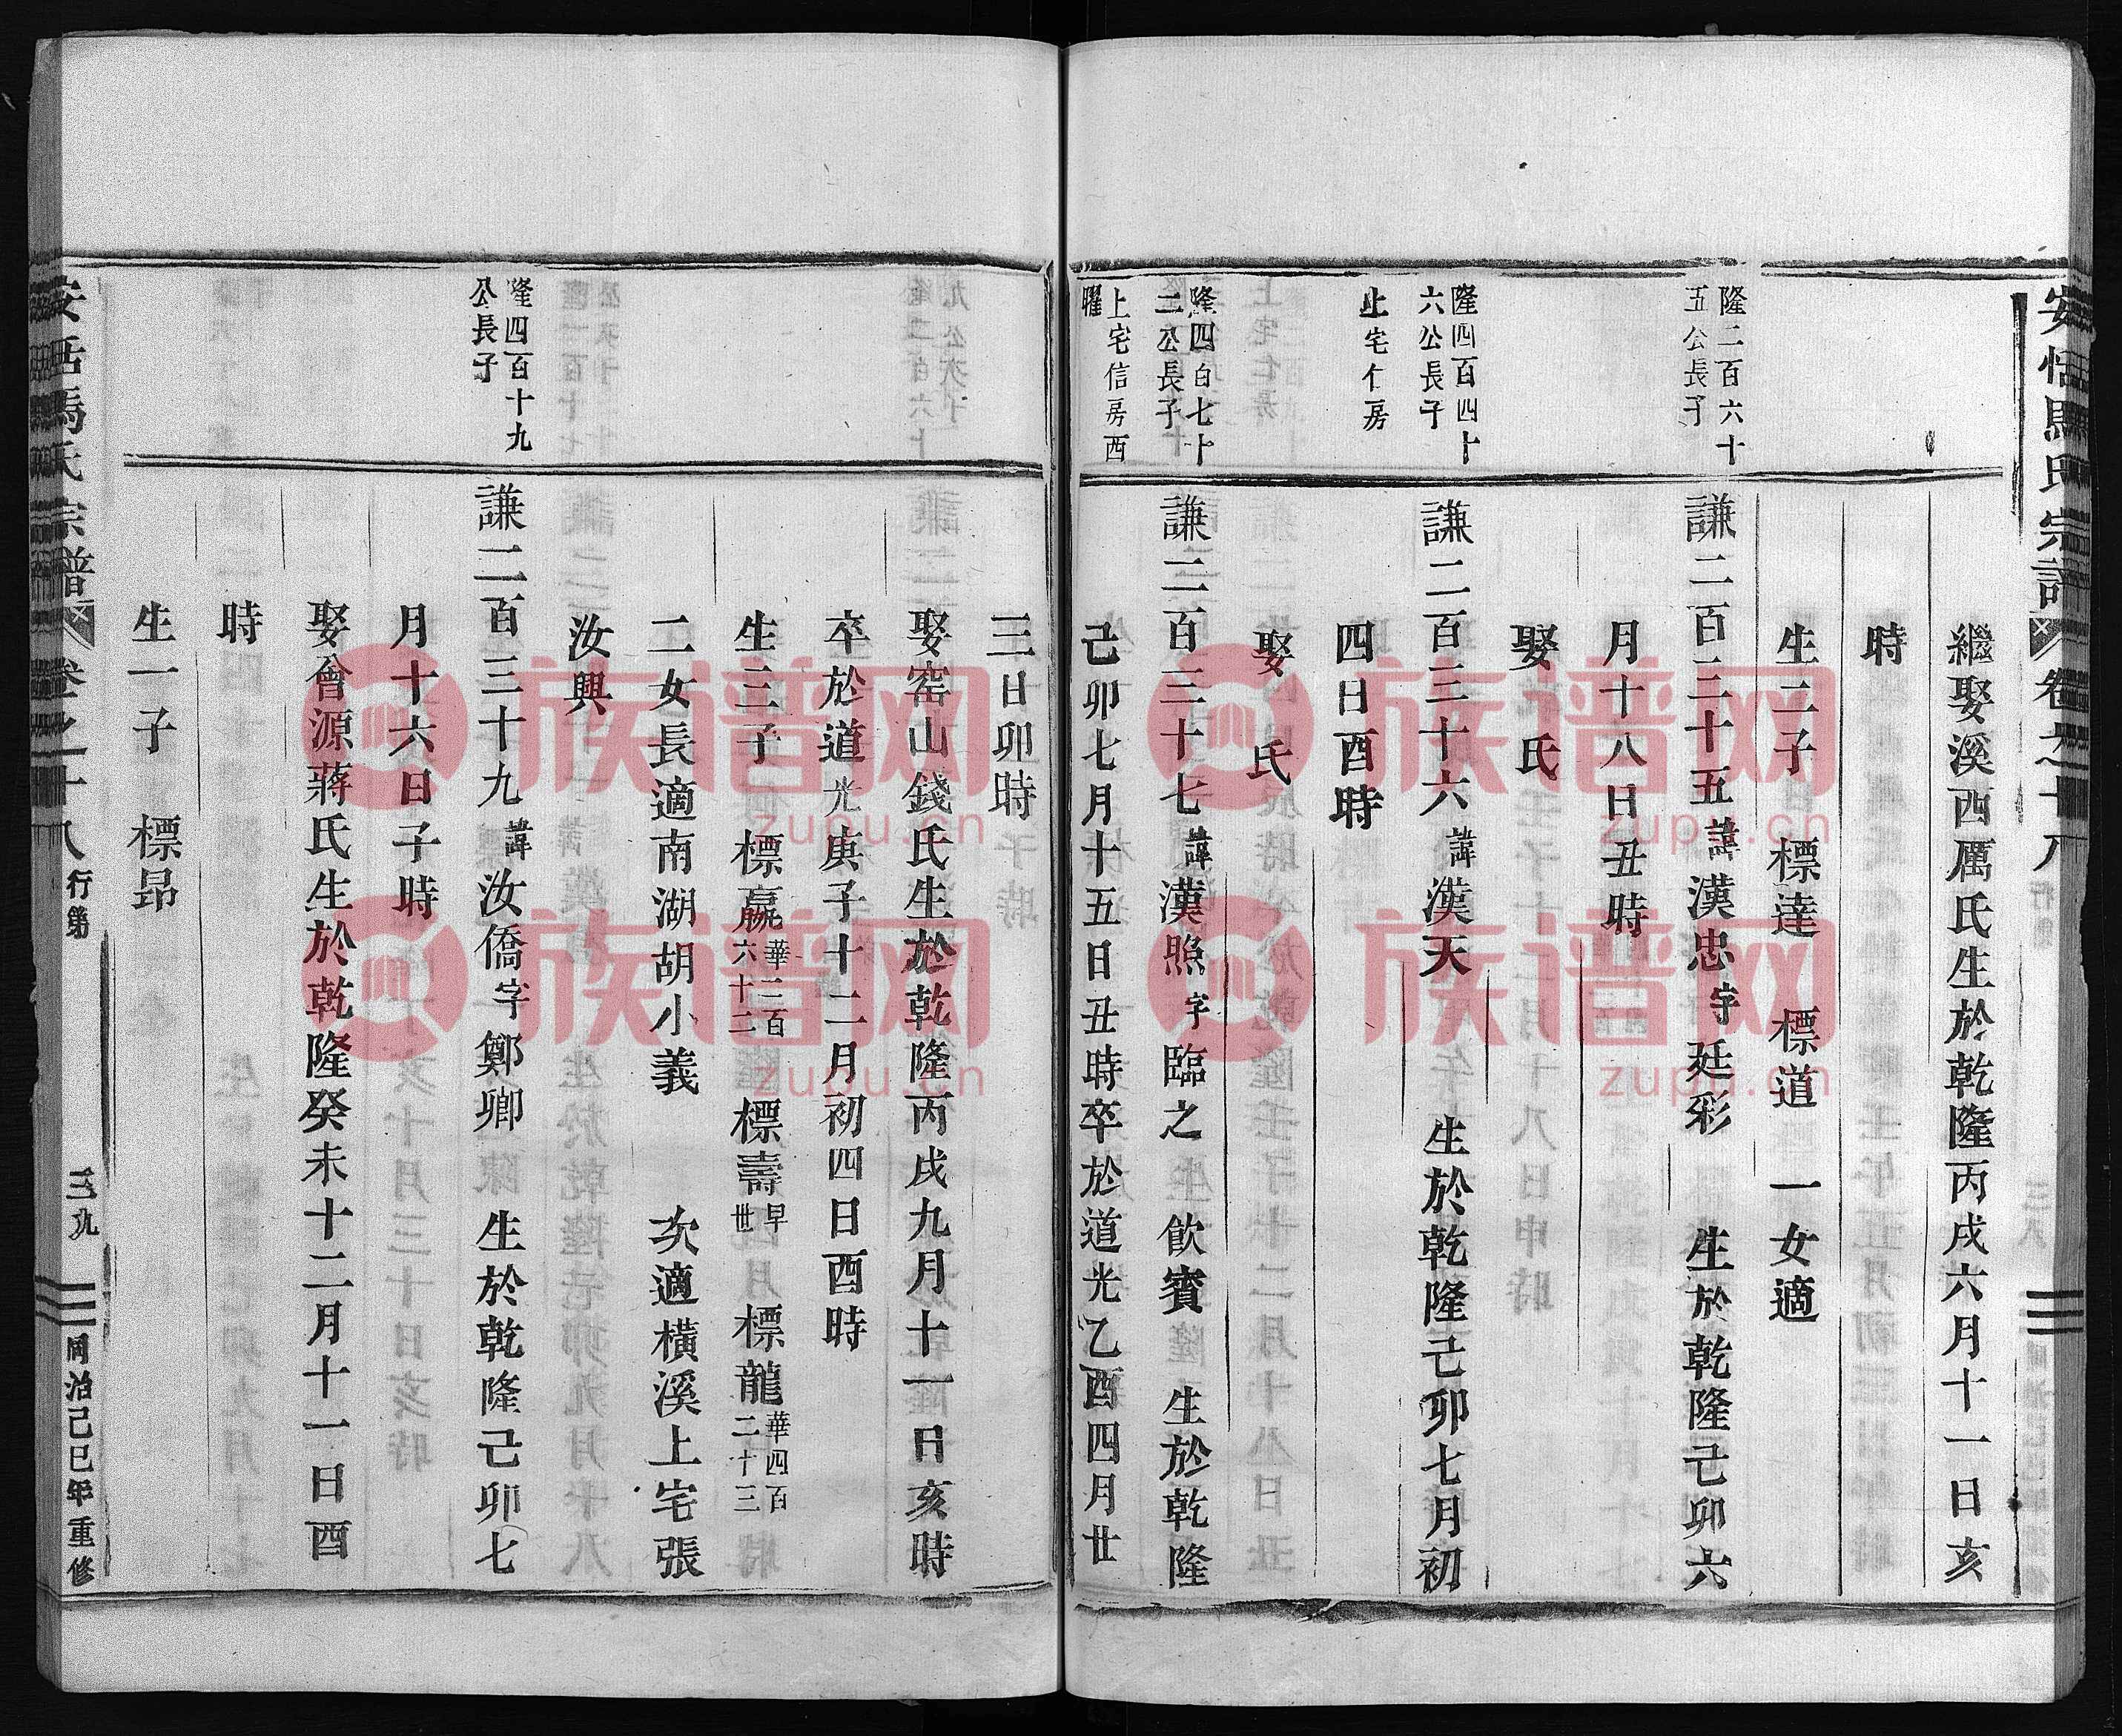 安恬馬氏宗譜 卷之十八 行第
繼娶溪西厲氏生於乾隆丙戌六月十一日亥
時
生二子 標達 標道 一女適
隆二百六十
五公長子
謙二百三十五諱漢忠字廷彩 生於乾隆己卯六
月十八日丑時
娶 氏
隆四百四十
六公長子
謙二百三十六諱漢天 生於乾隆己卯七月初
上宅仁房
四日酉時
娶 氏
隆四百七十
二公長子
謙二百三十七諱漢照字臨之 飲賓 生於乾隆
上宅信房西
曜
己卯七月十五日丑時卒於道光乙酉四月廿
三日卯時
娶窑山錢氏生於乾隆丙戌九月十一日亥時
卒於道光庚子十二月初四日酉時
生三子 標嬴華二百六十二 標壽早世 標龍華四百二十三
二女長適南湖胡小義 次適橫溪上宅張
汝興
隆四百十九
公長子
謙二百三十九諱汝僑字鄭卿 生於乾隆己卯七
月十六日子時
娶會源蔣氏生於乾隆癸未十二月十一日酉
時
生一子 標昂
安恬馬氏宗譜 卷之十八 行第 三九 同治己巳年重修
族谱网
zupu.cn
族谱网
zupu.cn
族谱网
zupu.cn
族谱网
zupu.cn